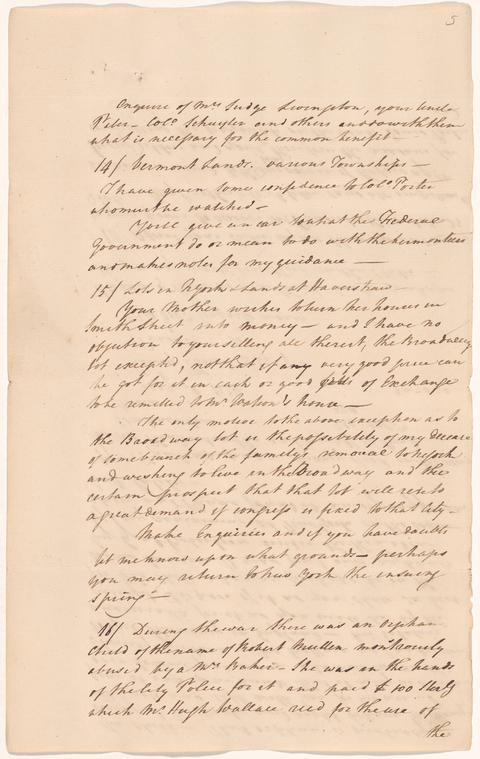 5
Enquire of Mrs Judge Livingston, your Uncle
Peter – Colo. Schuyler and others and do with them
what is necessary for the common benefit –
14/ Vermont Lands. various Townships –
I have given some confidence to Colo. Porter
who must be watched –
You'll give an ear to what the Federal
Government do or mean to do with the Vermonteers
and make notes for my guidance –
15/ Lots in N York & Lands at Haverstraw –
Your Mother wishes to turn her houses in
Smith Street into money – and I have no
objection to your selling all the rest, the Broadway
lot excepted, not that if any very good price can
be got for it in cash or good Bills of Exchange
to be remitted to Mr Watson's house –
The only motive to the above exception as to
the Broadway lot is the possibility of my decease
of some branch of the family's removal to N York
and wishing to live in the Broadway and the
certain prospect that that lot will rise to
a great demand if congress is fixed to that City –
Make Enquiries and if you have doubts
let me know upon what grounds – perhaps
you may return to New York the ensuing
spring –
16/ During the war there was an Orphan
Child of the name of Robert Mullen monstrously
abused by a Mrs Baker – She was in the hands
of the City Police for it and paid £ 100 Sterlg
which Mr Hugh Wallace recd for the use of
the